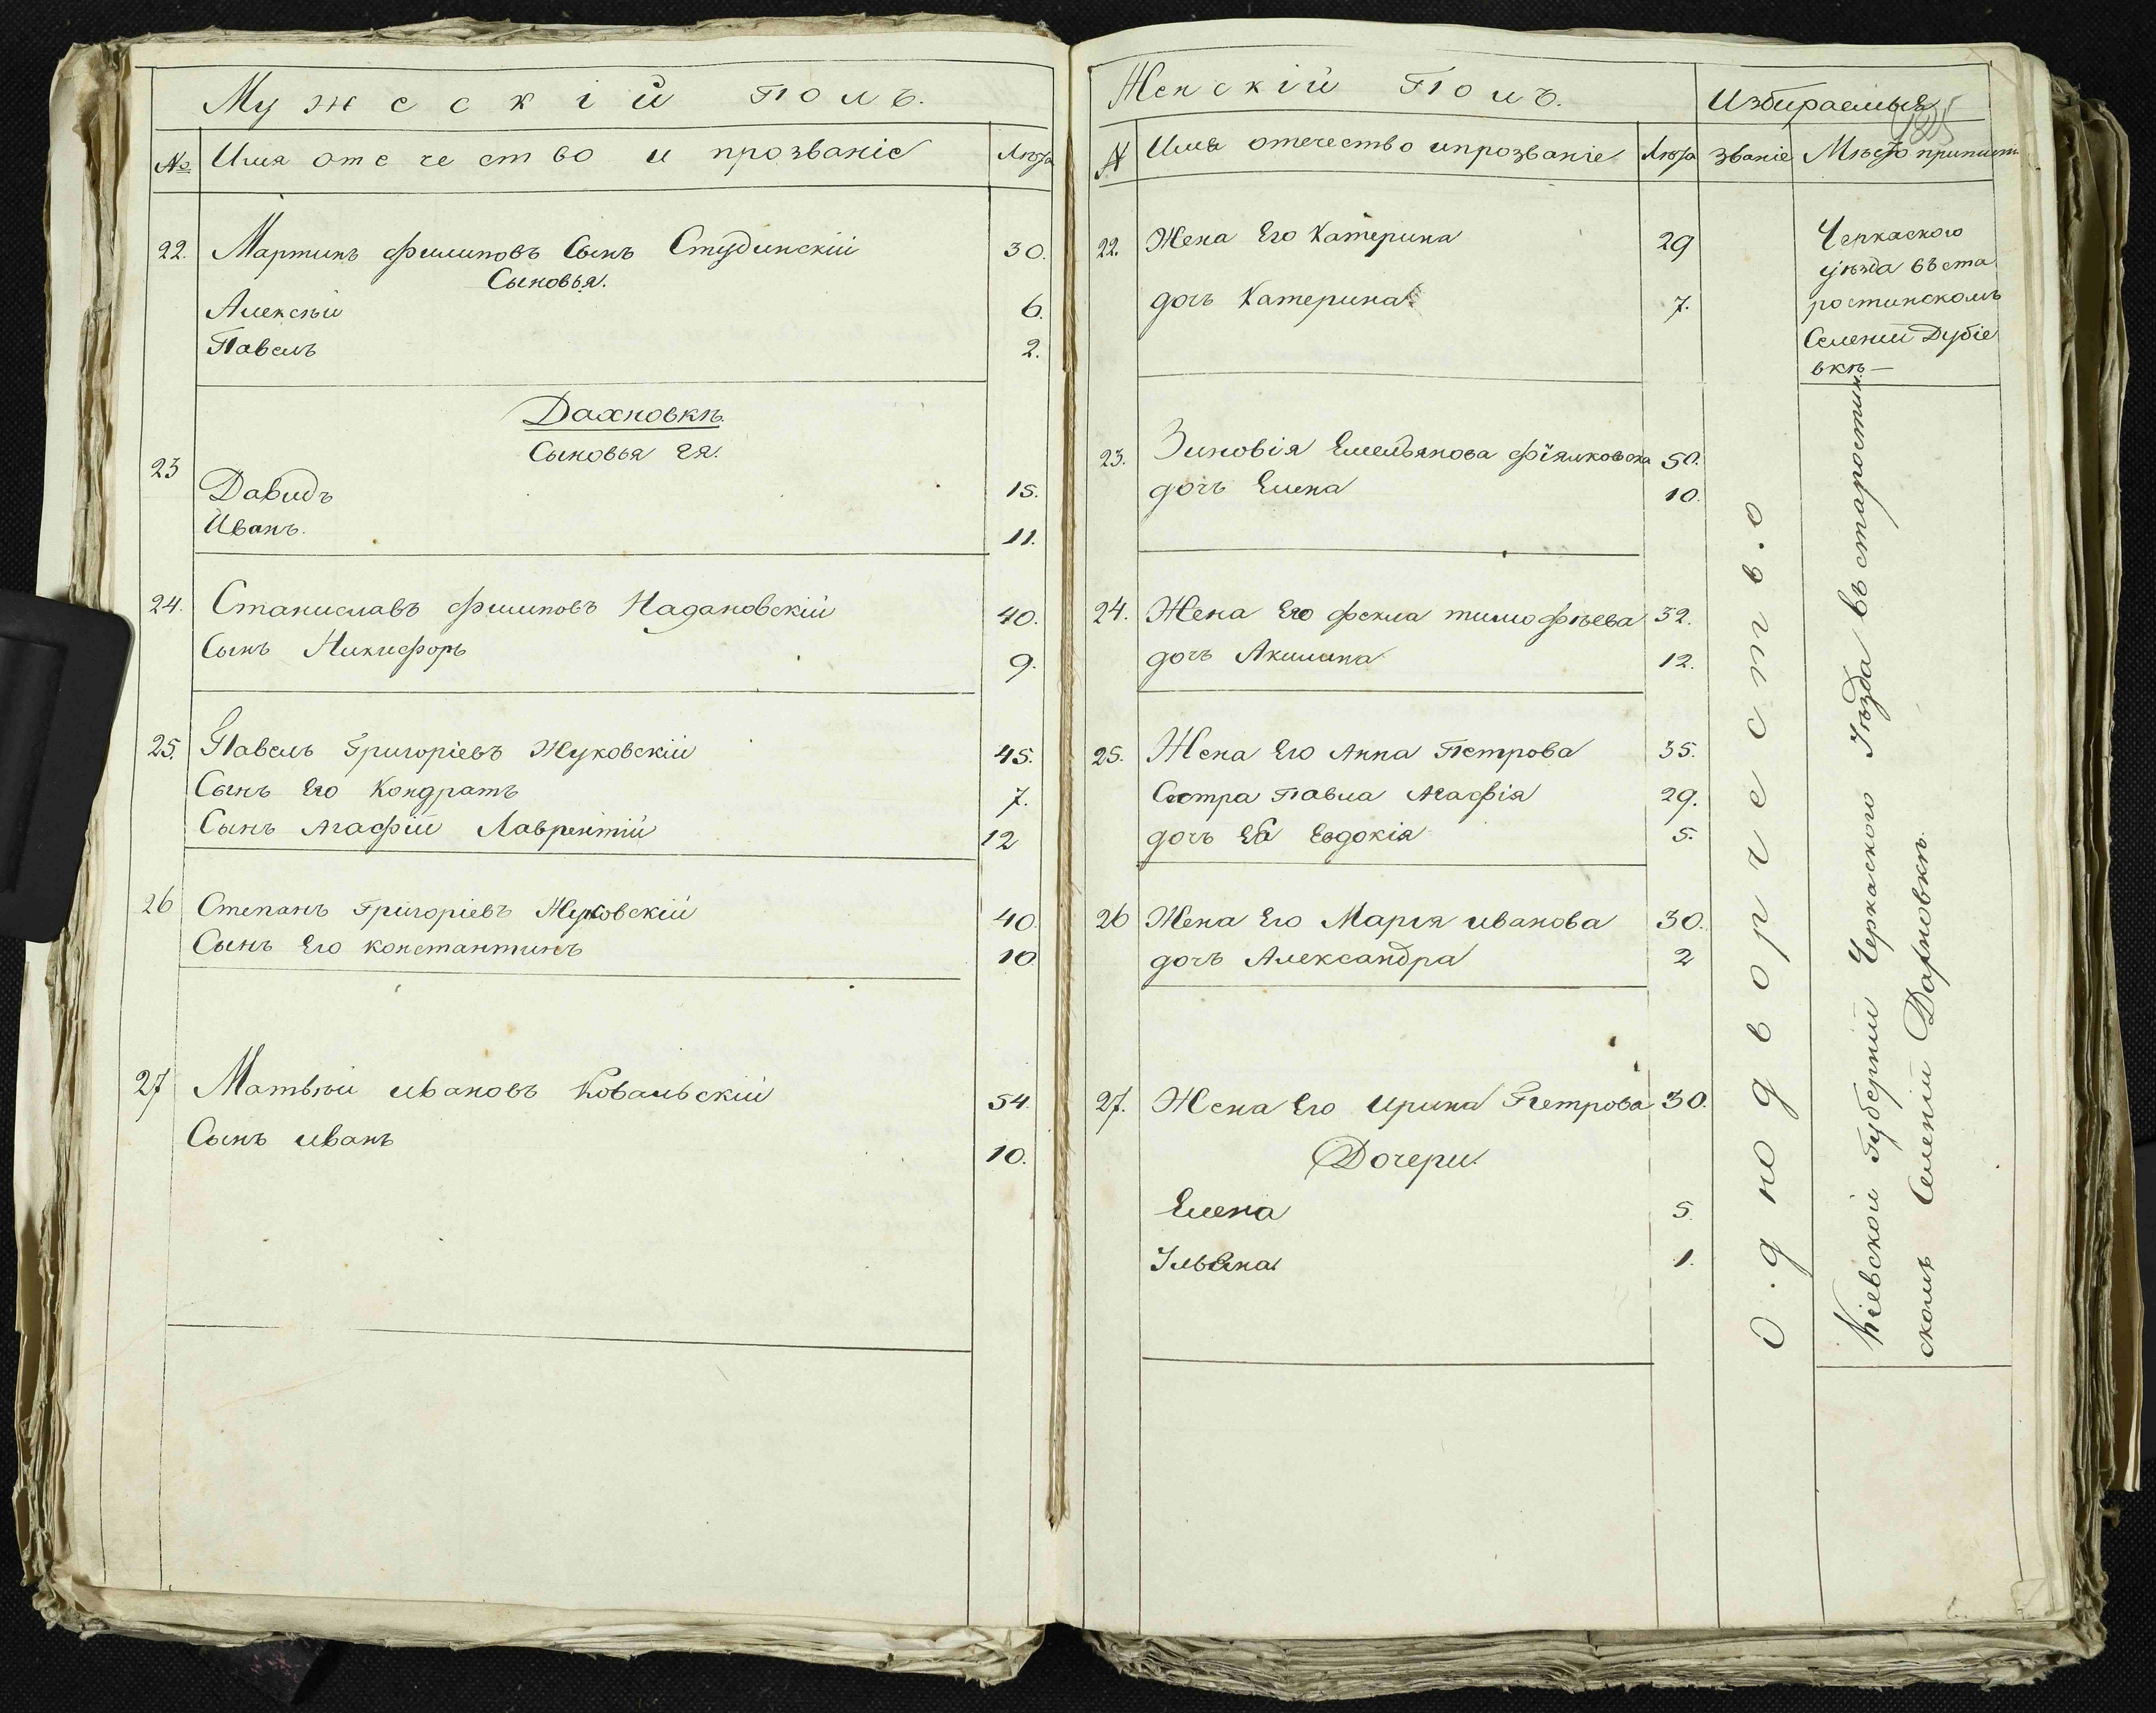 Мужескій Полъ.
№ Имя отечество и прозваніе Лѣта
22. Мартинъ Филиповъ Сынъ Студинскій 30.
Сыновья.
Алексѣй 6.
Павелъ 2.
Дахновкѣ.
Сыновья Ея.
23
Давидъ 15.
Иванъ. 11.
24. Станиславъ Филиповъ Надановскій 40.
Сынъ Никифоръ 9.
25. Павелъ Григоріевъ Жуковскій 45.
Сынъ Его Кондратъ 7.
Сынъ Агафіи Лаврентій 12
26 Степанъ Григоріевъ Жуковскій 40.
Сынъ Его Константинъ 10
27 Матвѣй Ивановъ Ковальскій 54.
Сынъ Иванъ 10.
Женскій Полъ. Избираемыя
№ Имя отечество и прозваніе Лѣта званіе Мѣсто
22. Жена Его Катерина 29
дочь Катерина 7.
Черкаского
уѣзда въ Ста
ростинскомъ
Селеніи Дубіе
вкѣ—
23. Зиновія Емельянова Фіялковска 50.
дочь Елена 10.
24. Жена Его Фекла Тимофѣева 32.
дочь Акилина 12.
25. Жена Его Анна Петрова 35.
Сестра Павла Агафія 29.
дочь Ея Евдокія 5.
26 Жена Его Марія Иванова 30.
дочь Александра 2
27. Жена Его Ирина Петрова 30.
Дочери.
Елена 5.
Ульяна 1.
Однодворчество
Кіевской Губерніи Черкаского Уѣзда въ старостин
скомъ Селеніи Дахновкѣ.